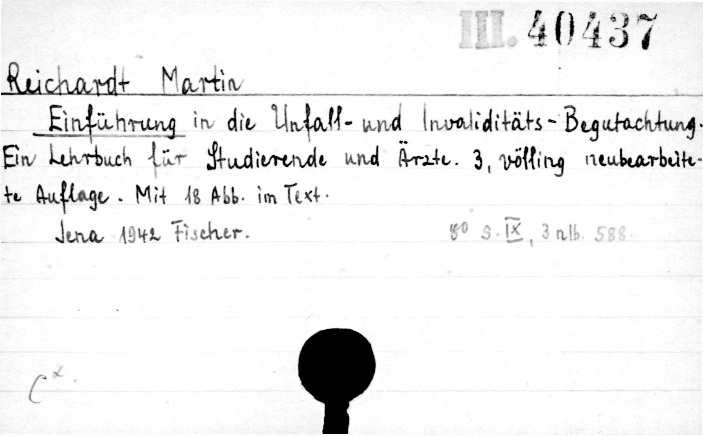 III. 40437
Reichardt Martin
Einführung in die Unfall- und Invaliditäts-Begutachtung.
Ein Lehrbuch für Studierende und Ärzte. 3, völling neubearbeite-
te Auflage. Mit 18 Abb. im Text.
Jena 1942 Fischer. 8° S. IX, 3 nlb. 588.